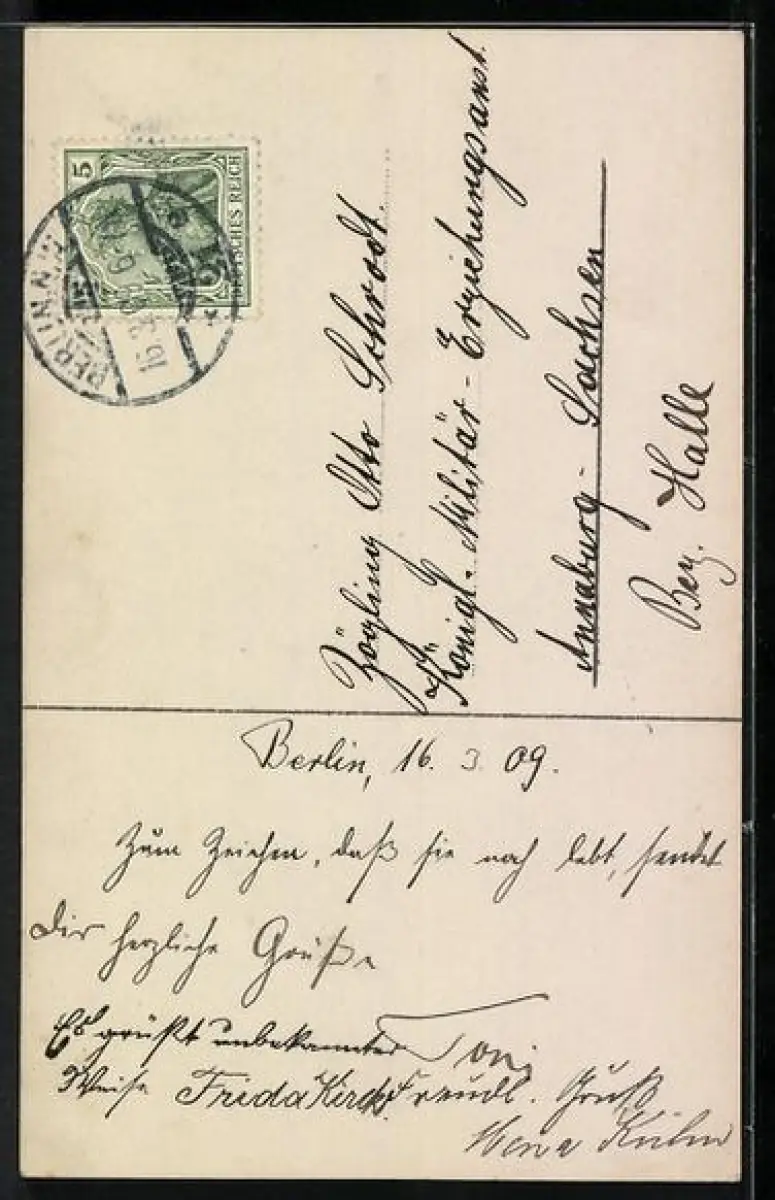 5
DEUTSCHES REICH
BERLIN N.
16.3.09
Zögling Otto Schrodt.
Königl. Militär-Erziehungsanst.
Annaburg-Sachsen
Bez. Halle
Berlin, 16. 3. 09.
Zum Zeichen, daß sie noch lebt, sendet
Dir herzliche Grüße
Toni
Es grüßt unbekannter
Weise Frida
Freundl. Gruß
Kühn